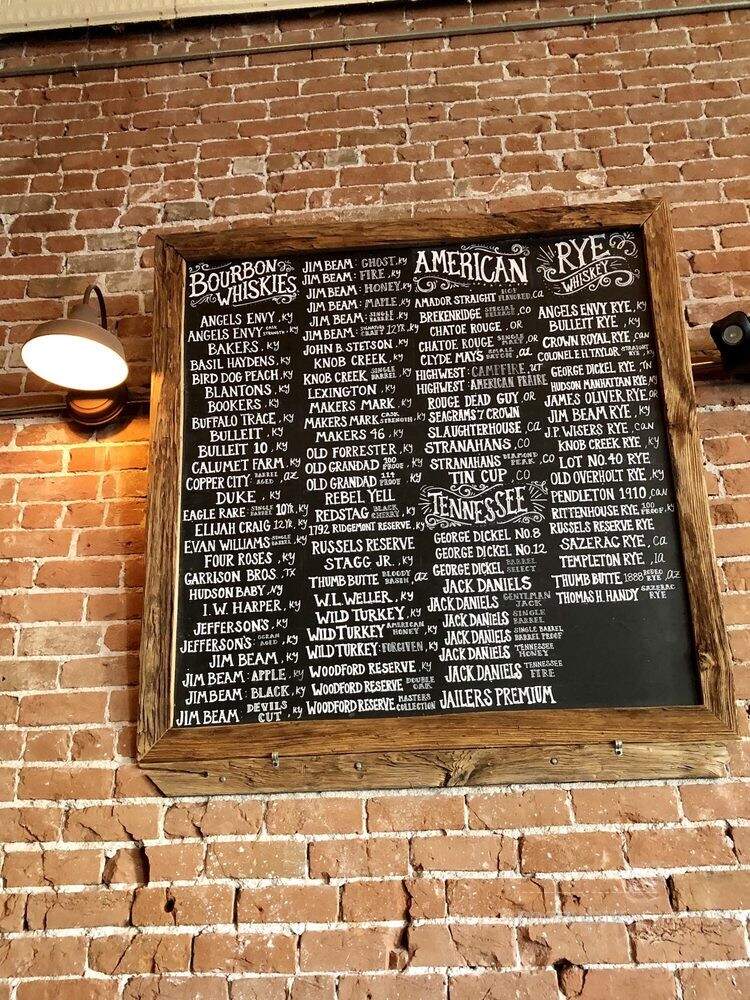 BOURBON
WHISKIES
ANGELS ENVY, KY
ANGELS ENVY CASK STRENGTH, KY
BAKERS, KY
BASIL HAYDENS, KY
BIRD DOG PEACH, KY
BLANTONS, KY
BOOKERS, KY
BUFFALO TRACE, KY
BULLEIT, KY
BULLEIT 10, KY
CALUMET FARM, KY
COPPER CITY: BARREL AGED, AZ
DUKE, KY
EAGLE RARE: SINGLE BARREL 10YR, KY
ELIJAH CRAIG 12YR, KY
EVAN WILLIAMS SINGLE BARREL, KY
FOUR ROSES, KY
GARRISON BROS. TX
HUDSON BABY, NY
I.W. HARPER, KY
JEFFERSON'S, KY
JEFFERSON'S: OCEAN AGED, KY
JIM BEAM, KY
JIM BEAM: APPLE, KY
JIM BEAM: BLACK, KY
JIM BEAM: DEVILS CUT, KY
JIM BEAM: GHOST, KY
JIM BEAM: FIRE, KY
JIM BEAM: HONEY, KY
JIM BEAM: MAPLE, KY
JIM BEAM: SINGLE BARREL, KY
JIM BEAM: SIGNATURE CRAFT 12YR, KY
JOHN B. STETSON, KY
KNOB CREEK, KY
KNOB CREEK SINGLE BARREL, KY
LEXINGTON, KY
MAKERS MARK, KY
MAKERS MARK CASK STRENGTH, KY
MAKERS 46, KY
OLD FORRESTER, KY
OLD GRANDAD 100 PROOF, KY
OLD GRANDAD 114 PROOF, KY
REBEL YELL
REDSTAG BLACK CHERRY, KY
1792 RIDGEMONT RESERVE, KY
RUSSELS RESERVE
STAGG JR., KY
THUMB BUTTE BLOODY BASIN, AZ
W.L. WELLER, KY
WILD TURKEY, KY
WILD TURKEY AMERICAN HONEY, KY
WILD TURKEY: FORGIVEN, KY
WOODFORD RESERVE, KY
WOODFORD RESERVE DOUBLE OAK
WOODFORD RESERVE MASTERS COLLECTION
AMERICAN
AMADOR STRAIGHT HOP FLAVORED, CA
BREKENRIDGE SPECIAL RELEASE, CO
CHATOE ROUGE, OR
CHATOE ROUGE SINGLE MALT, OR
CLYDE MAYS SMALL BATCH, AZ
HIGHWEST: CAMPFIRE, UT
HIGHWEST: AMERICAN PRAIRE
ROUGE DEAD GUY, OR
SEAGRAMS 7 CROWN
SLAUGHTERHOUSE, CA
STRANAHANS, CO
STRANAHANS DIAMOND PEAK, CO
TIN CUP, CO
TENNESSEE
GEORGE DICKEL NO. 8
GEORGE DICKEL NO. 12
GEORGE DICKEL BARREL SELECT
JACK DANIELS
JACK DANIELS GENTLEMAN JACK
JACK DANIELS SINGLE BARREL
JACK DANIELS SINGLE BARREL BARREL PROOF
JACK DANIELS TENNESSEE HONEY
JACK DANIELS TENNESSEE FIRE
JAILERS PREMIUM
RYE
WHISKEY
ANGELS ENVY RYE, KY
BULLEIT RYE, KY
CROWN ROYAL RYE, CAN
COLONEL E.H. TAYLOR STRAIGHT RYE, KY
GEORGE DICKEL RYE, TN
HUDSON MANHATTAN RYE, NY
JAMES OLIVER RYE, OR
JIM BEAM RYE, KY
J.P. WISERS RYE, CAN
KNOB CREEK RYE, KY
LOT NO. 40 RYE
OLD OVERHOLT RYE, KY
PENDLETON 1910, CAN
RITTENHOUSE RYE 100 PROOF, KY
RUSSELS RESERVE RYE
SAZERAC RYE, CA
TEMPLETON RYE, IA
THUMB BUTTE 1888 RODEO RYE, AZ
THOMAS H. HANDY SAZERAC RYE